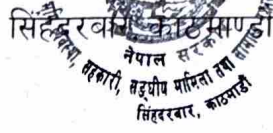 सिंहदरबार, काठमाण्डौ
नेपाल सरकार
सहकारी, सङ्घीय मामिला तथा
सिंहदरबार, काठमाडौं